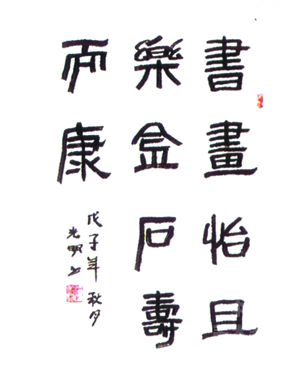 書畫怡且
樂金石壽
而康
戊子年秋月
光明书